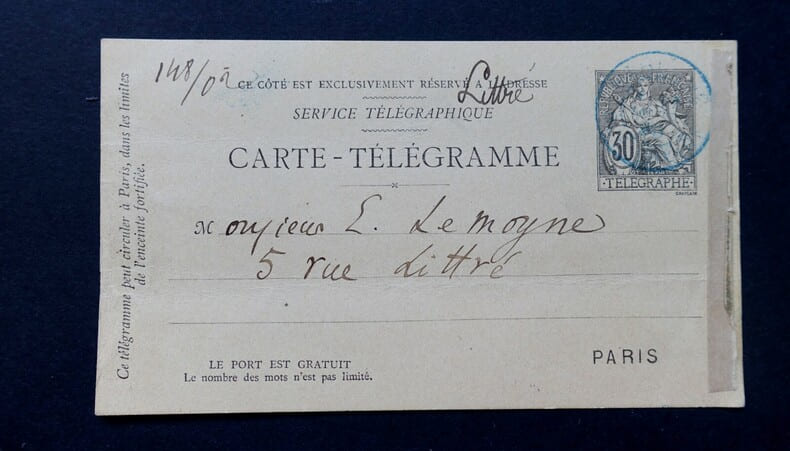 148/02
CE CÔTÉ EST EXCLUSIVEMENT RÉSERVÉ A L'ADRÉSSE
Littré
SERVICE TÉLÉGRAPHIQUE
CARTE-TÉLÉGRAMME
RÉPUBLIQUE FRANÇAISE
30
·TELEGRAPHE·
Monsieur E. Lemoyne
5 rue Littré
PARIS
LE PORT EST GRATUIT
Le nombre des mots n'est pas limité.
Ce télégramme peut circuler à Paris, dans les limites
de l'enceinte fortifiée.